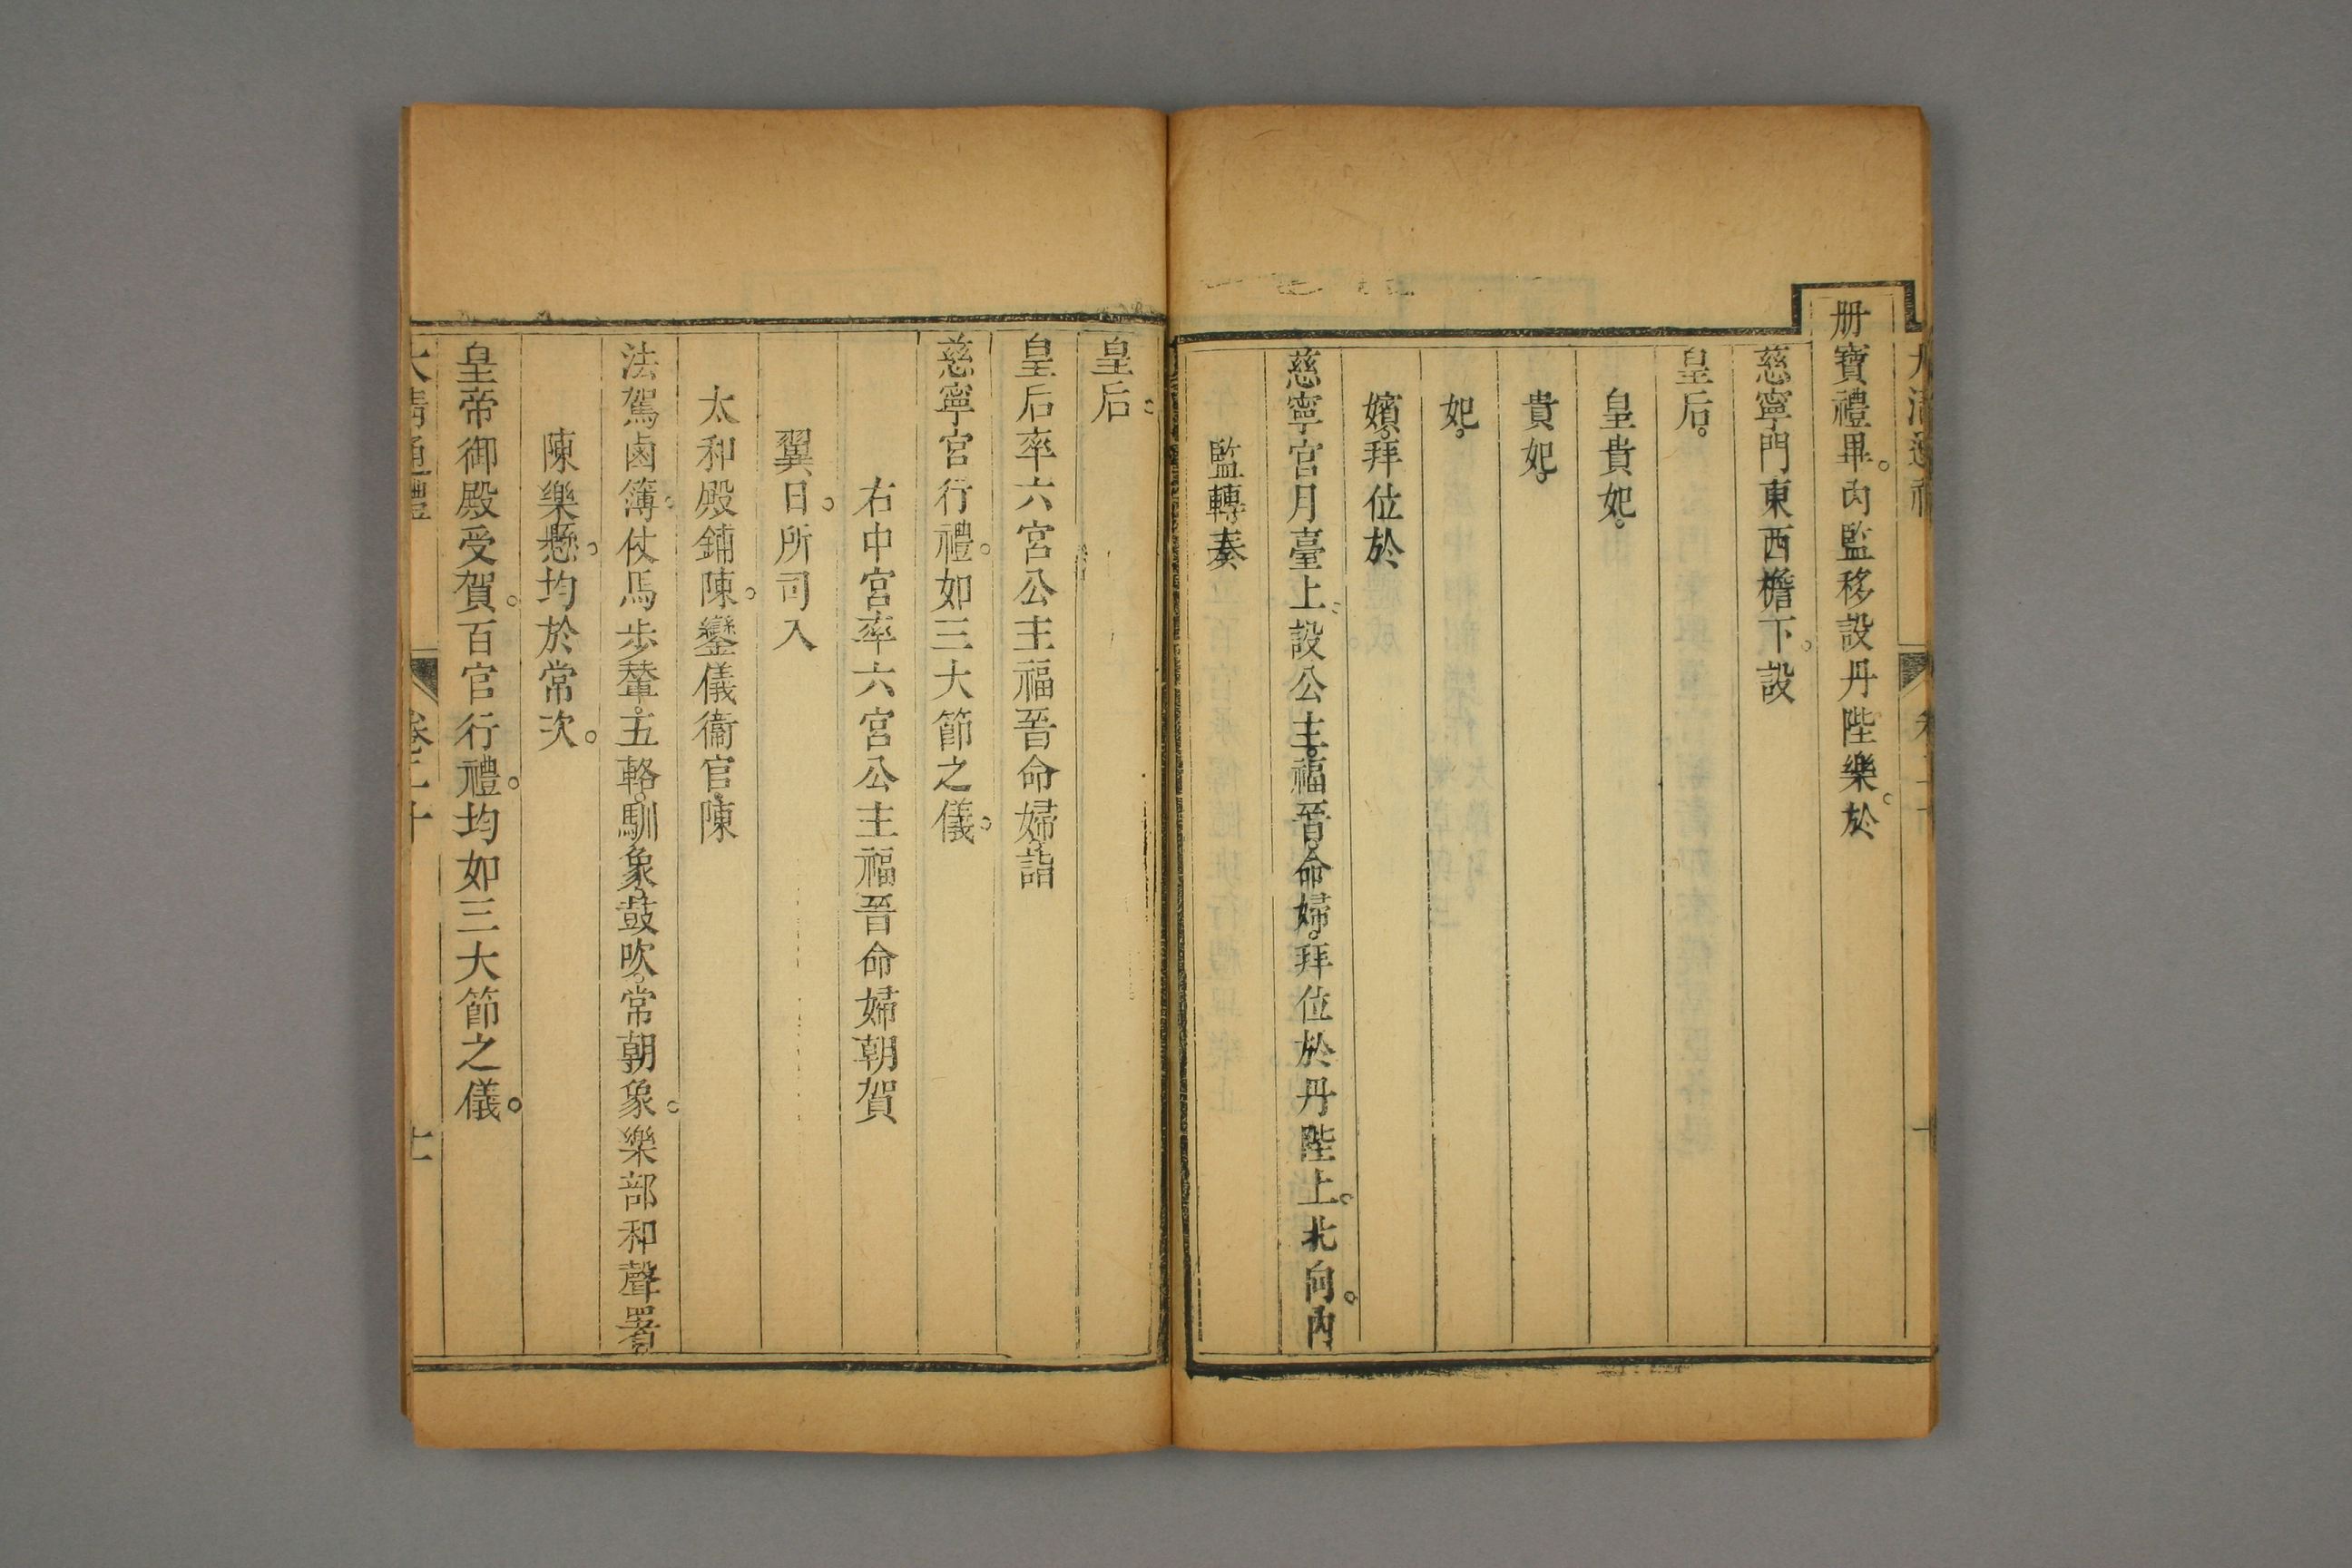 册寶禮畢。內監移設丹陛樂。於
慈寧門東西檐下。設
皇后。
皇貴妃。
貴妃。
妃。
嬪。拜位於
慈寧宮月臺上。設公主。福晉。命婦。拜位於丹陛上。北向。內
監轉奏
皇后。
皇后率六宮公主福晉命婦。詣
慈寧宮行禮。如三大節之儀。
右中宮率六宮公主福晉命婦朝賀
翼日。所司入
太和殿鋪陳。鑾儀衞官陳
法駕鹵簿。仗馬步輦。五輅。馴象。鼓吹。常朝象。樂部和聲署
陳樂懸。均於常次。
皇帝御殿受賀。百官行禮。均如三大節之儀。
大清通禮 卷二十 十一